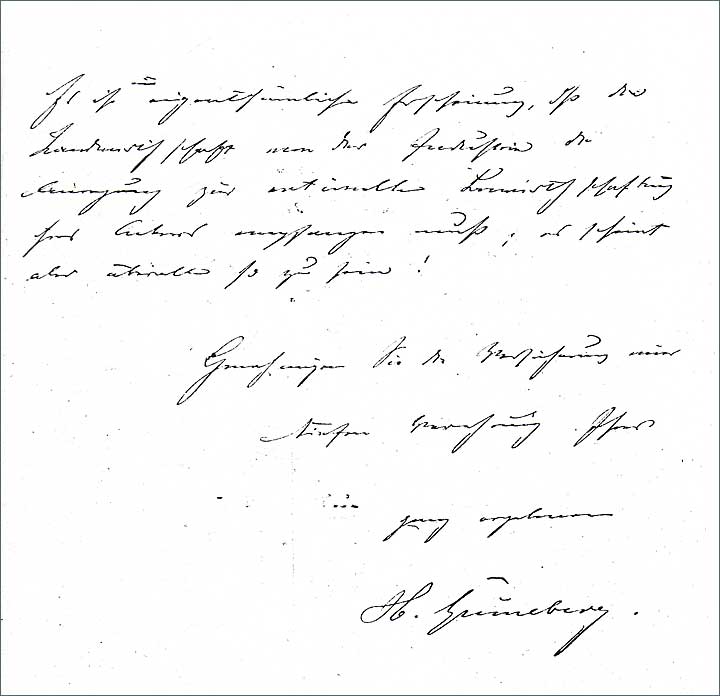 Es ist eigenthümliche Erscheinung, daß die
Landwirthschaft von der Industrie die
Anregung zur rationellen Bewirthschaftung
ihres Ackers empfangen muß; es scheint
aber überall so zu sein!
Genehmigen Sie die Versicherung einer
tiefen Verehrung Ihres
ganz ergebenen
H. Grüneberg.